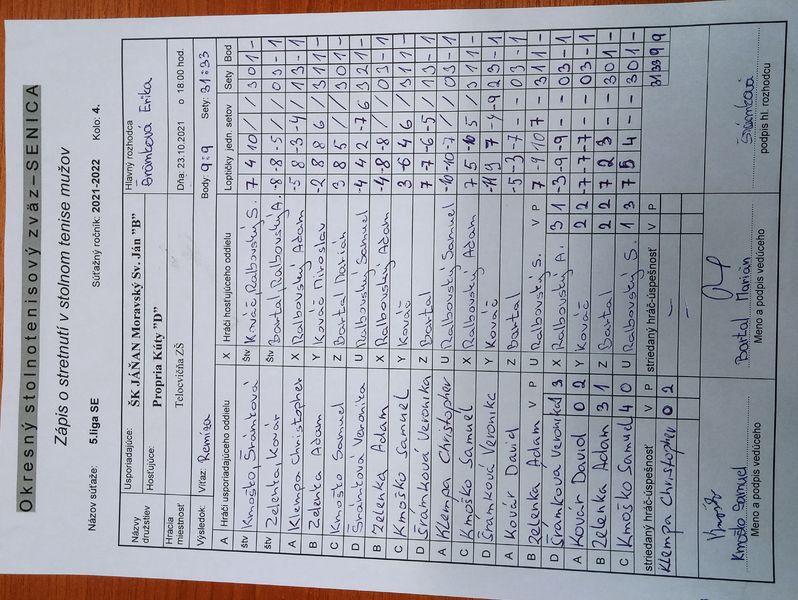 Okresný stolnotenisový zväz – SENICA
Zápis o stretnutí v stolnom tenise mužov
Názov súťaže: 5.liga SE Súťažný ročník: 2021-2022 Kolo: 4.
Názvy družstiev Usporiadajúce: ŠK JÁŇAN Moravský Sv. Ján "B" Hlavný rozhodca
Hosťujúce: Propria Kúty "D" Šrámková Erika
Hracia miestnosť Telocvičňa ZŠ Dňa: 23.10.2021 o 18:00 hod.
Výsledok: Víťaz: Remíza Body: 9:9 Sety: 31:33
A Hráči usporiadajúceho oddielu X Hráči hosťujúceho oddielu Loptičky jedn. setov Sety Bod
štv Kmoško, Šrámková štv Kováč Ralbovský S. 7 4 10 / / 3 0 1 -
štv Zelenka, Kovár štv Bartal, Ralbovský A. -8 -8 -5 / / 0 3 - 1
A Klempa Christopher X Ralbovský Adam -5 8 -3 -4 / 1 3 - 1
B Zelenka Adam Y Kováč Miroslav -2 8 8 6 / 3 1 1 -
C Kmoško Samuel Z Bartal Marián 3 8 5 / / 3 0 1 -
D Šrámková Veronika U Ralbovský Samuel -4 4 2 -7 6 3 2 1 -
B Zelenka Adam X Ralbovský Adam -4 -8 -8 / / 0 3 - 1
C Kmoško Samuel Y Kováč 3 -6 4 6 / 3 1 1 -
D Šrámková Veronika Z Bartal 7 -7 -6 -5 / 1 3 - 1
A Klempa Christopher U Ralbovský Samuel -10 -10 -7 / / 0 3 - 1
C Kmoško Samuel X Ralbovský Adam 7 5 -10 5 / 3 1 1 -
D Šrámková Veronika Y Kováč -11 9 7 -9 2 3 - 1
A Kovár David Z Bartal -5 -3 -7 - - 0 3 - 1
B Zelenka Adam V P U Ralbovský S. V P 7 -9 10 7 - 3 1 1 -
D Šrámková Veronika 1 3 X Ralbovský A. 3 1 -3 -9 -9 - - 0 3 - 1
A Kovár David 0 2 Y Kováč 2 2 -7 -7 -7 - - 0 3 - 1
B Zelenka Adam 3 1 Z Bartal 2 2 7 2 3 - - 3 0 1 -
C Kmoško Samuel 4 0 U Ralbovský S. 1 3 7 5 4 - - 3 0 1 -
striedaný hráč-úspešnosť V P striedaný hráč-úspešnosť V P 31 33 9 9
Klempa Christopher 0 2
Kmoško Samuel Bartal Marián Šrámková
Meno a podpis vedúceho Meno a podpis vedúceho podpis hl. rozhodcu